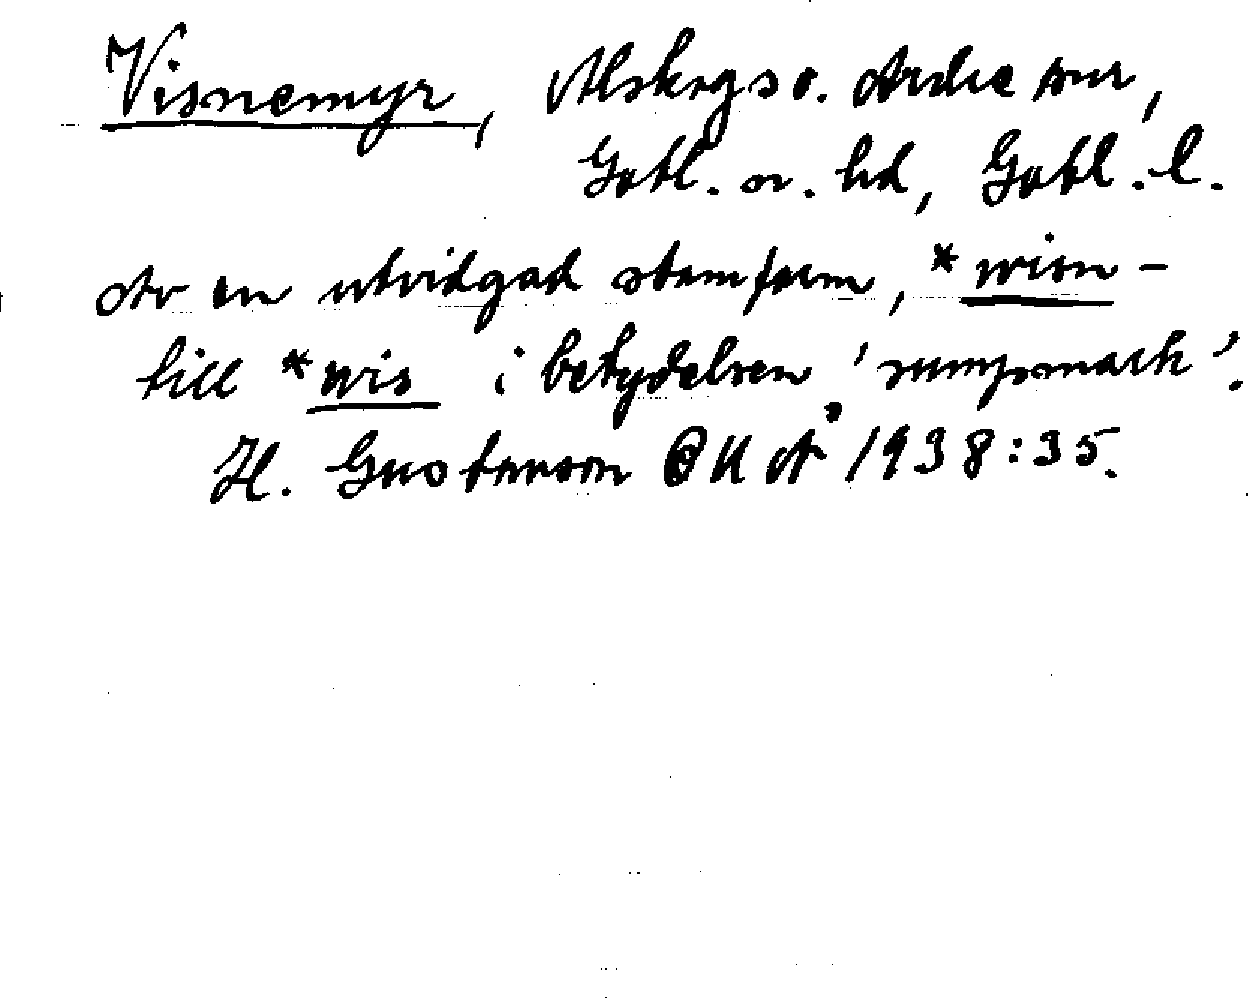 Visnemyr, Alskogs o. Ardre snr,
Gotl. s. hd, Gotl. l.
Av en utvidgad stamform, *wisn-
till *wis i betydelsen 'sumpmark'.
H. Gustavson GUÅ 1938:35.